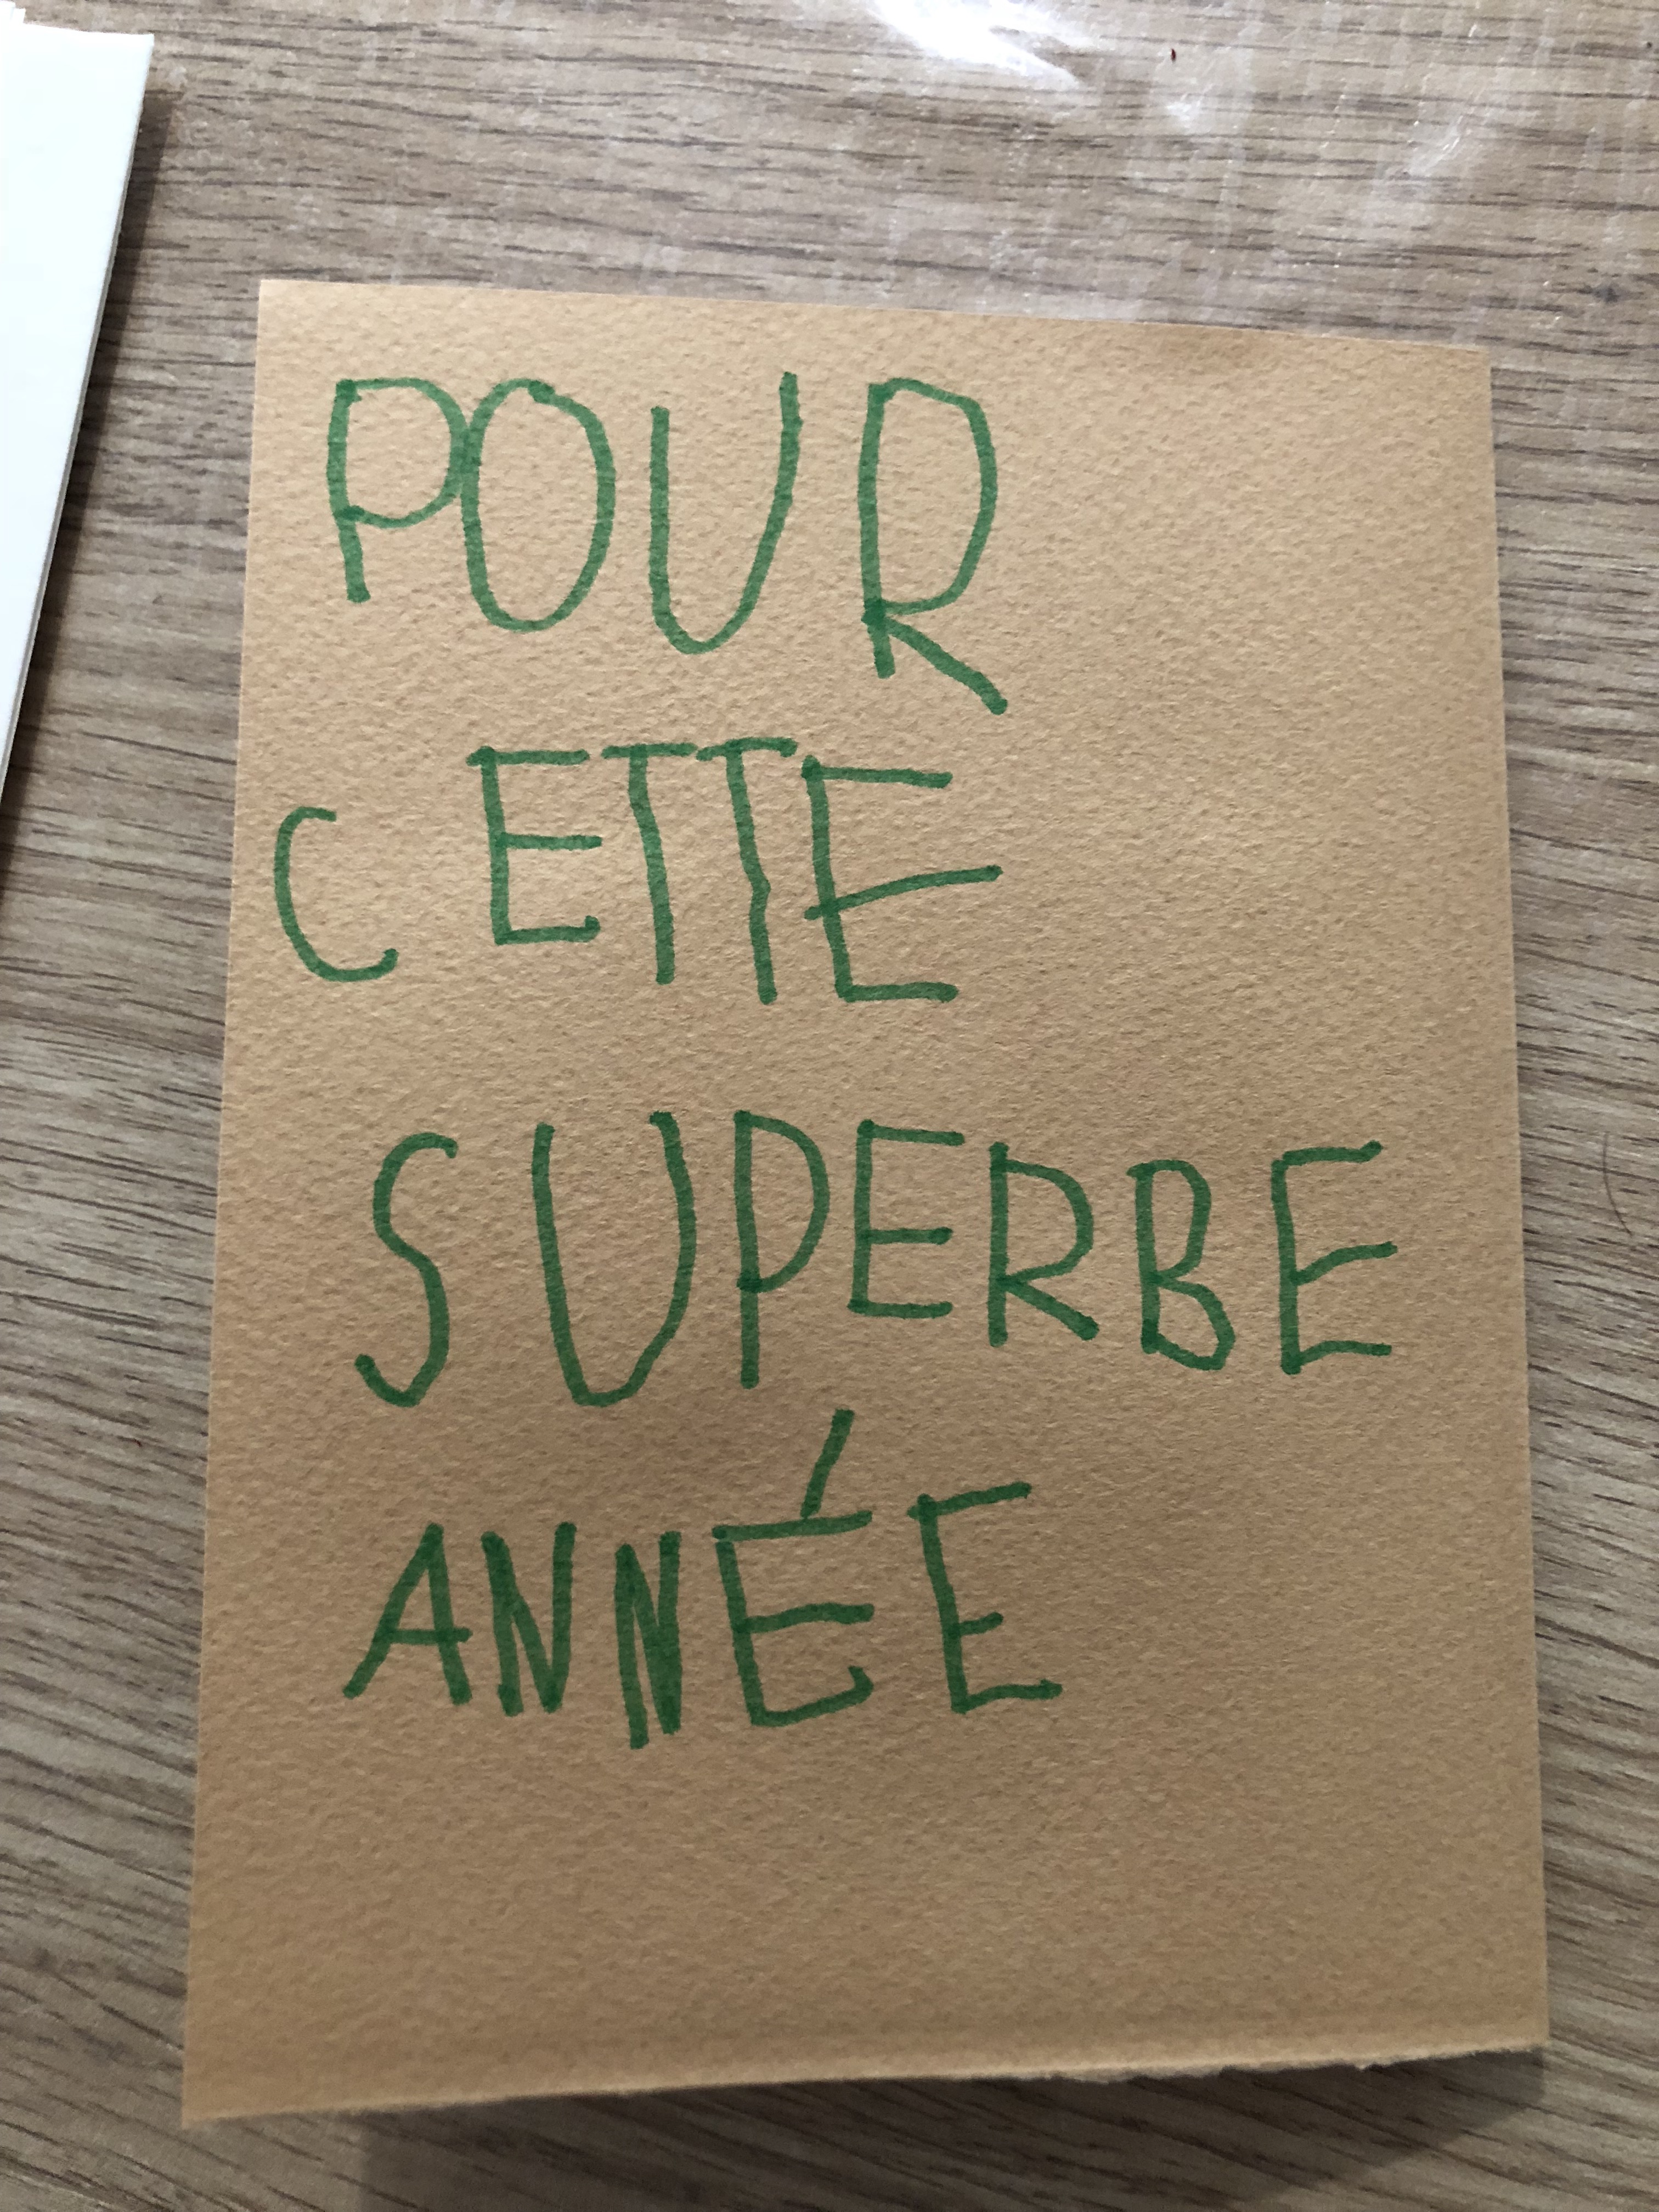 POUR
CETTE
SUPERBE
ANNÉE